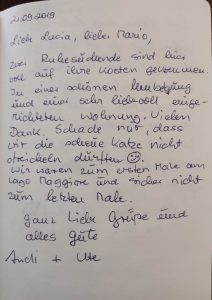 21.09.2019
Liebe Lucia, lieber Mario,
zwei Ruhesuchende sind hier
voll auf ihre Kosten gekommen.
In einer schönen Umgebung
und einer sehr liebevoll einge-
richteten Wohnung. Vielen
Dank. Schade nur, dass
wir die scheue Katze nicht
streicheln durften ☺.
Wir waren zum ersten Male am
Lago Maggiore und sicher nicht
zum letzten Male.
Ganz liebe Grüße und
alles Gute
Andi + Ute